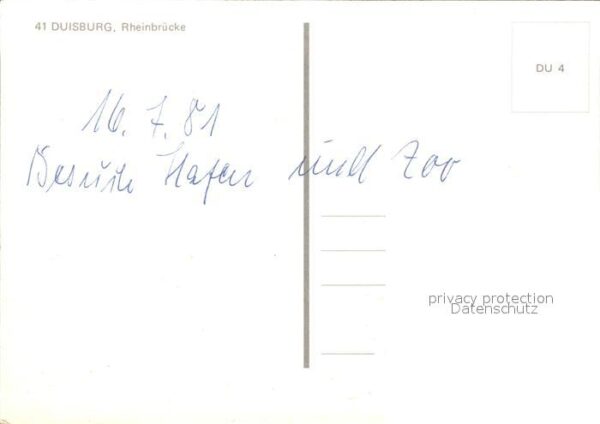 41 DUISBURG, Rheinbrücke
DU 4
16. 7. 81
Besuch Hafen und Zoo
privacy protection
Datenschutz